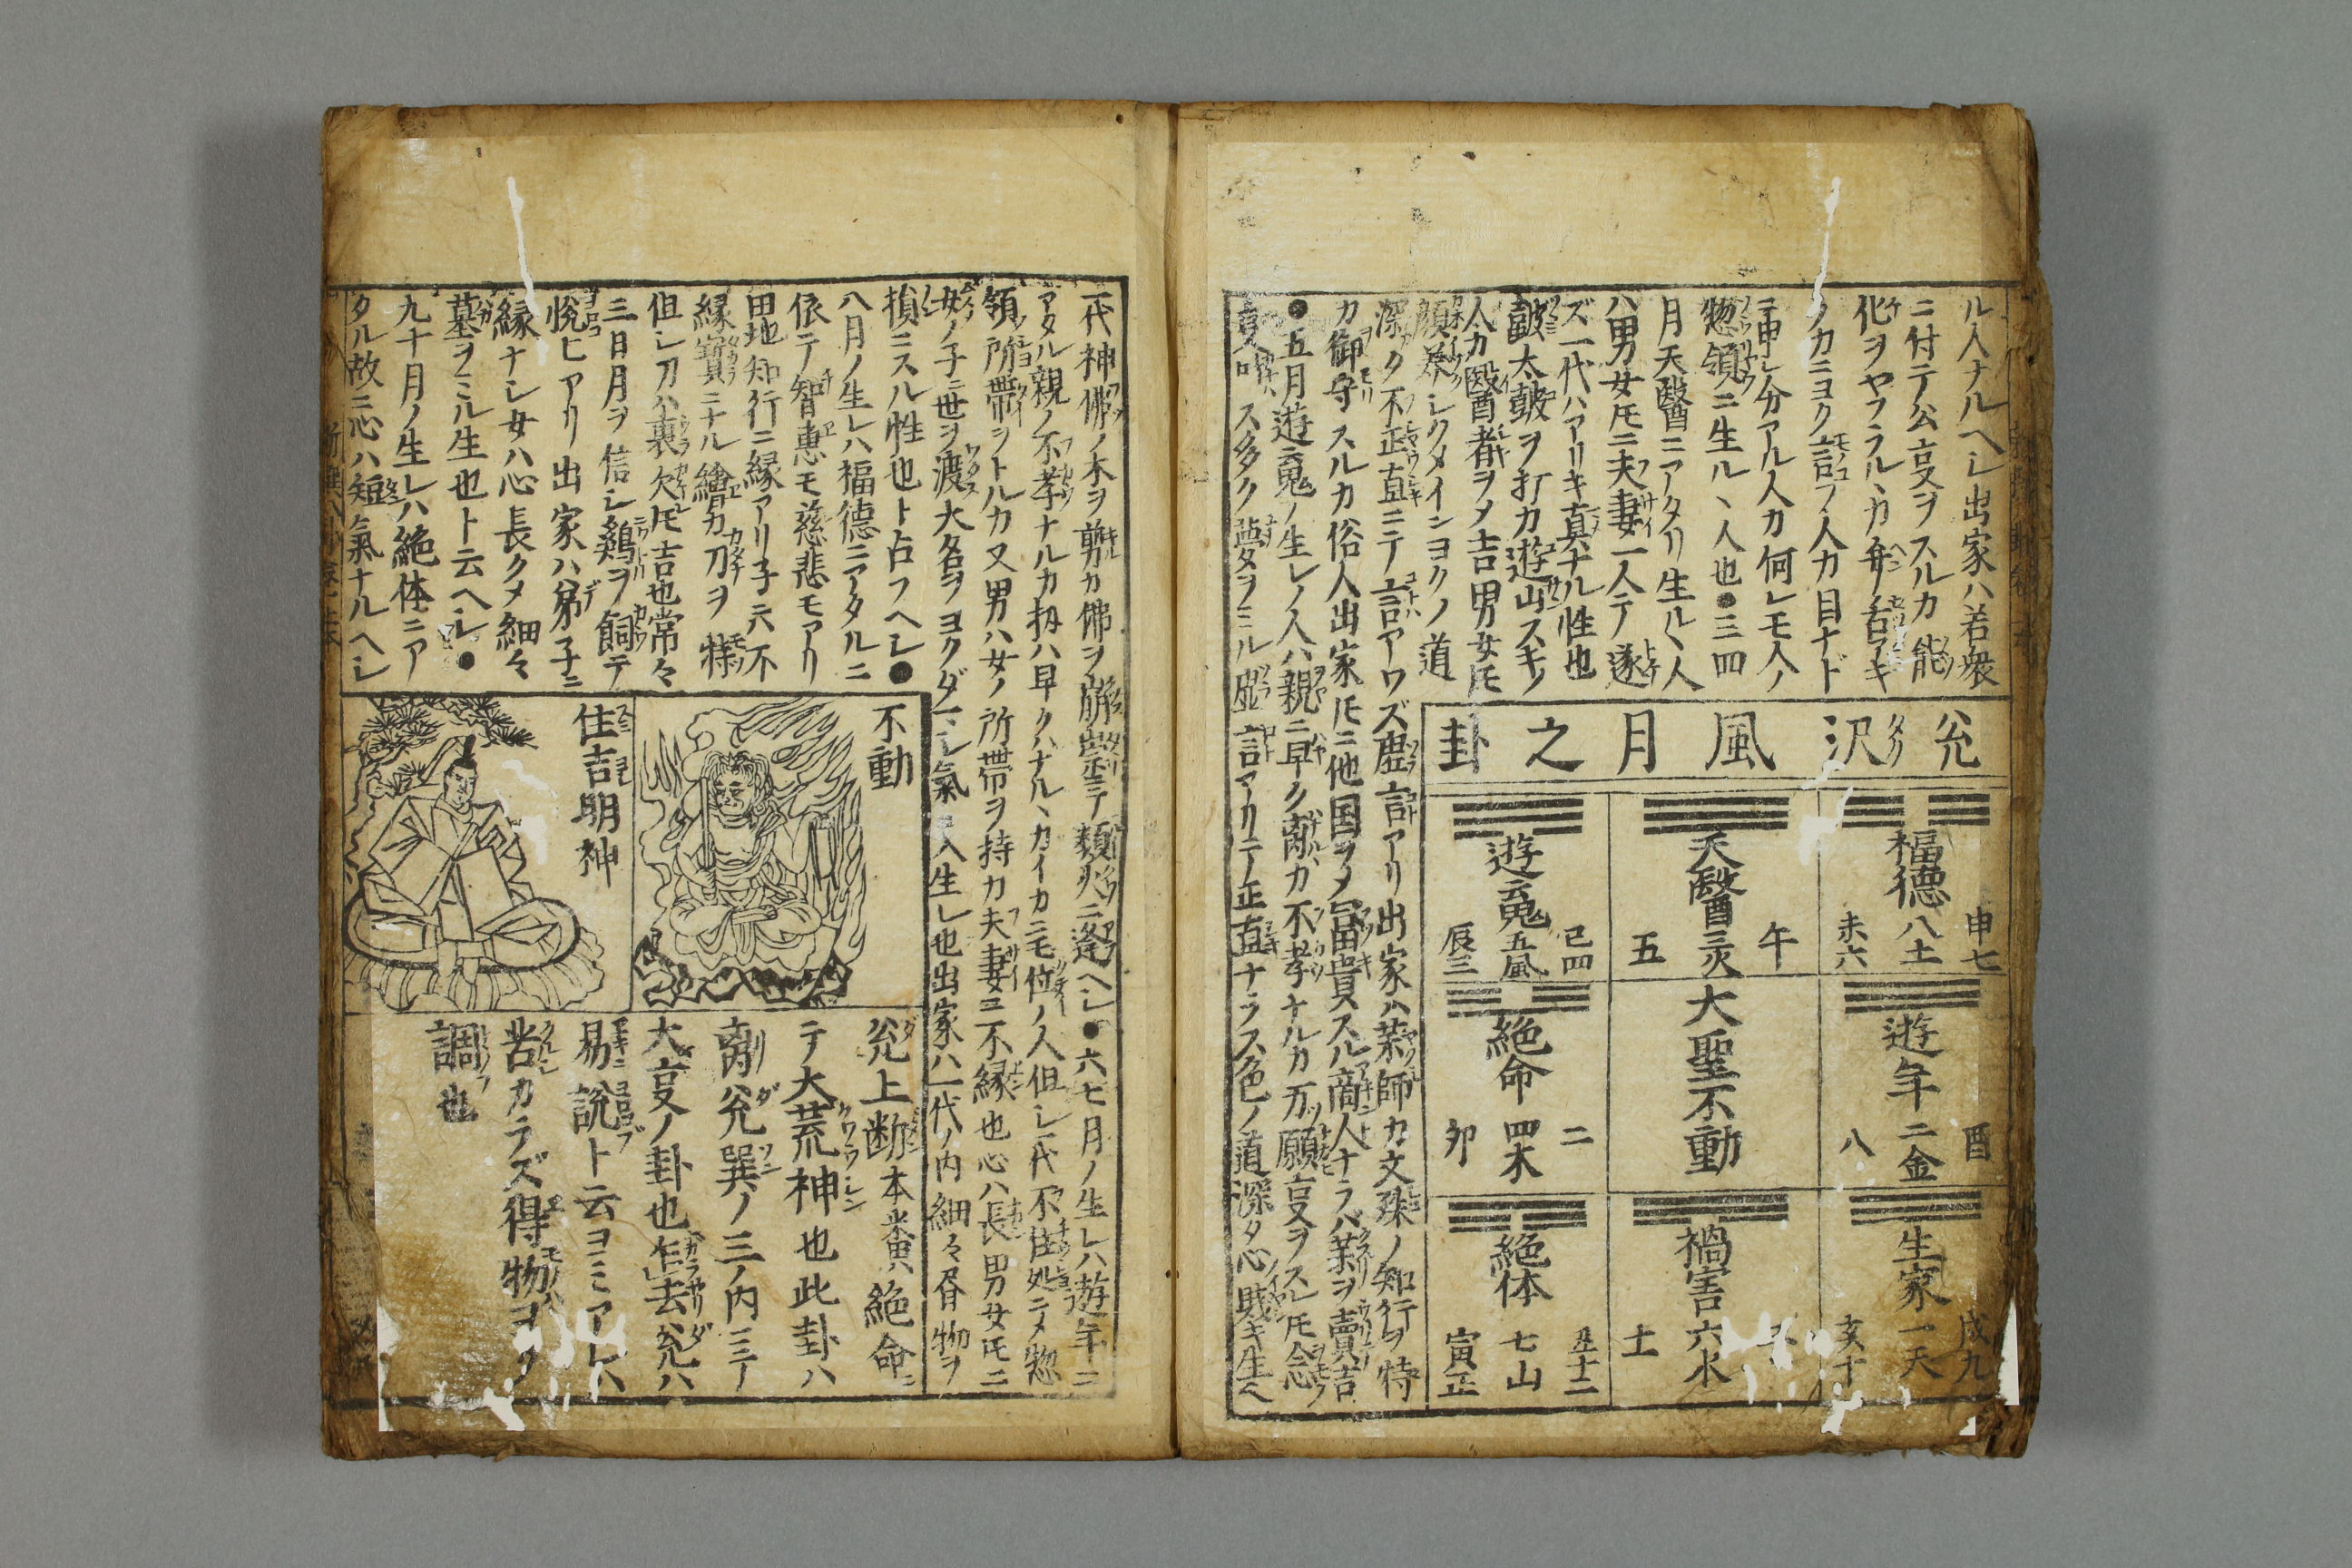 ル人ナルヘシ出家ハ若衆
ニ付テ公亊ヲスルカ能
化ヲヤフラルヽカ弁舌アキ
ノカニヨク言フ人カ目ナド
ニ申シ分アル人カ何レモ人ノ
惣領ニ生ルヽ人也●三四
月天醫ニアタリ生ルヽ人
ハ男女𪜈ニ夫妻一人テ遂
ズ一代ハアリキ真ナル性也
皷太皷ヲ打カ遊山スキノ
人カ醫者ヲメ吉男女𪜈
顔養シクメインヨクノ道
深ク不正直ニテ言アワズ虚言アリ出家ハ薬師カ文殊ノ知行ヲ特
カ御守スルカ俗人出家𪜈ニ他国ヲメ冨貴スル啇人ナラバ薬ヲ賣吉
●五月遊䰟ノ生レノ人ハ親ニ早ク离カ不孝ナルカ万願亊ヲスレ𪜈念
ス多ク夢ヲミル虚言アリテ正直ナラス色ノ道深タ心賎キ生ヘ
兊沢風月之卦
福德八土
申七
未六
遊年二金
酉
八
生家一天
戌九
亥十
天醫三灾
午
五
大聖不動
禍害六水
土
遊䰟五風
巳四
辰三
絶命四木
二
卯
絶体七山
丑十二
寅正
一代神佛ノ木ヲ剪カ佛ヲ崩祟テ類火ニ逢ヘシ●六七月ノ生レハ遊年ニ
アタル親ノ不孝ナルカ扨ハ早クハナルヽカイカニモ位ノ人但シ一代不住処ニメ惣
領ノ所帶ヲトルカ又男ハ女ノ所帯ヲ持カ夫妻ニ不縁也心ハ長男女𪜈ニ
女ノ子ニ世ヲ渡大名ヲヨクダヽシ氣ノ人生レ也出家ハ一代ノ内細々昼物ヲ
損ニスル性也ト占フヘシ●
八月ノ生レハ福德ニアタルニ
依テ智恵モ慈悲モアリ
田地知行ニ縁アリ子ニハ不
縁寳ニナル繪カ刀ヲ特
但シ刀ハ裏欠𪜈吉也常々
三日月ヲ信シ鷄ヲ飼テ
悦ヒアリ出家ハ弟子ニ
縁ナシ女ハ心長クメ細々
墓ヲミル生也ト云ヘシ●
九十月ノ生レハ絶体ニア
タル故ニ心ハ短氣ナルヘシ
不動
住吉明神
兊上断本来ハ絶命ニ
テ大荒神也此卦ハ
离兊巽ノ三ノ内三ノ
大亊ノ卦也乍去兊ハ
易説ト云ヨミアレハ
苦カラズ得物ヨク
調也